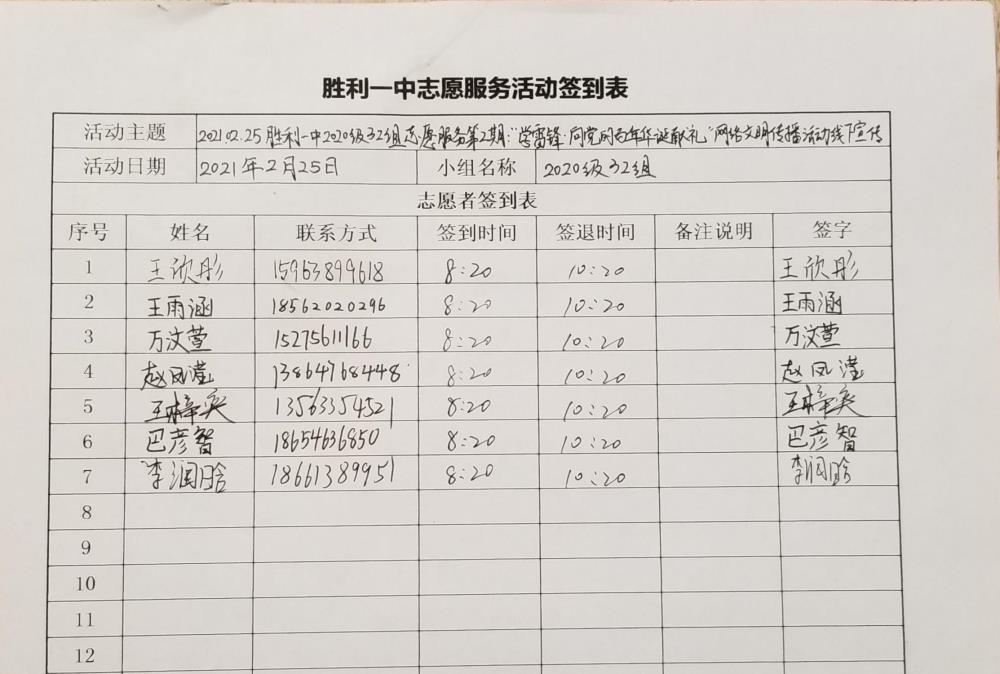 胜利一中志愿服务活动签到表
活动主题 2021.02.25胜利一中2020级32组志愿服务第2期:“学雷锋·向党的百年华诞献礼”网络文明传播活动线下宣传
活动日期 2021年2月25日 小组名称 2020级32组
志愿者签到表
序号 姓名 联系方式 签到时间 签退时间 备注说明 签字
1 王欣彤 15963899618 8:20 10:20 王欣彤
2 王雨涵 18562020296 8:20 10:20 王雨涵
3 万汶萱 15275611166 8:20 10:20 万汶萱
4 赵凤滢 13864768448 8:20 10:20 赵凤滢
5 王梓奕 13563354521 8:20 10:20 王梓奕
6 巴彦智 18654636850 8:20 10:20 巴彦智
7 李润晗 18661389951 8:20 10:20 李润晗
8
9
10
11
12